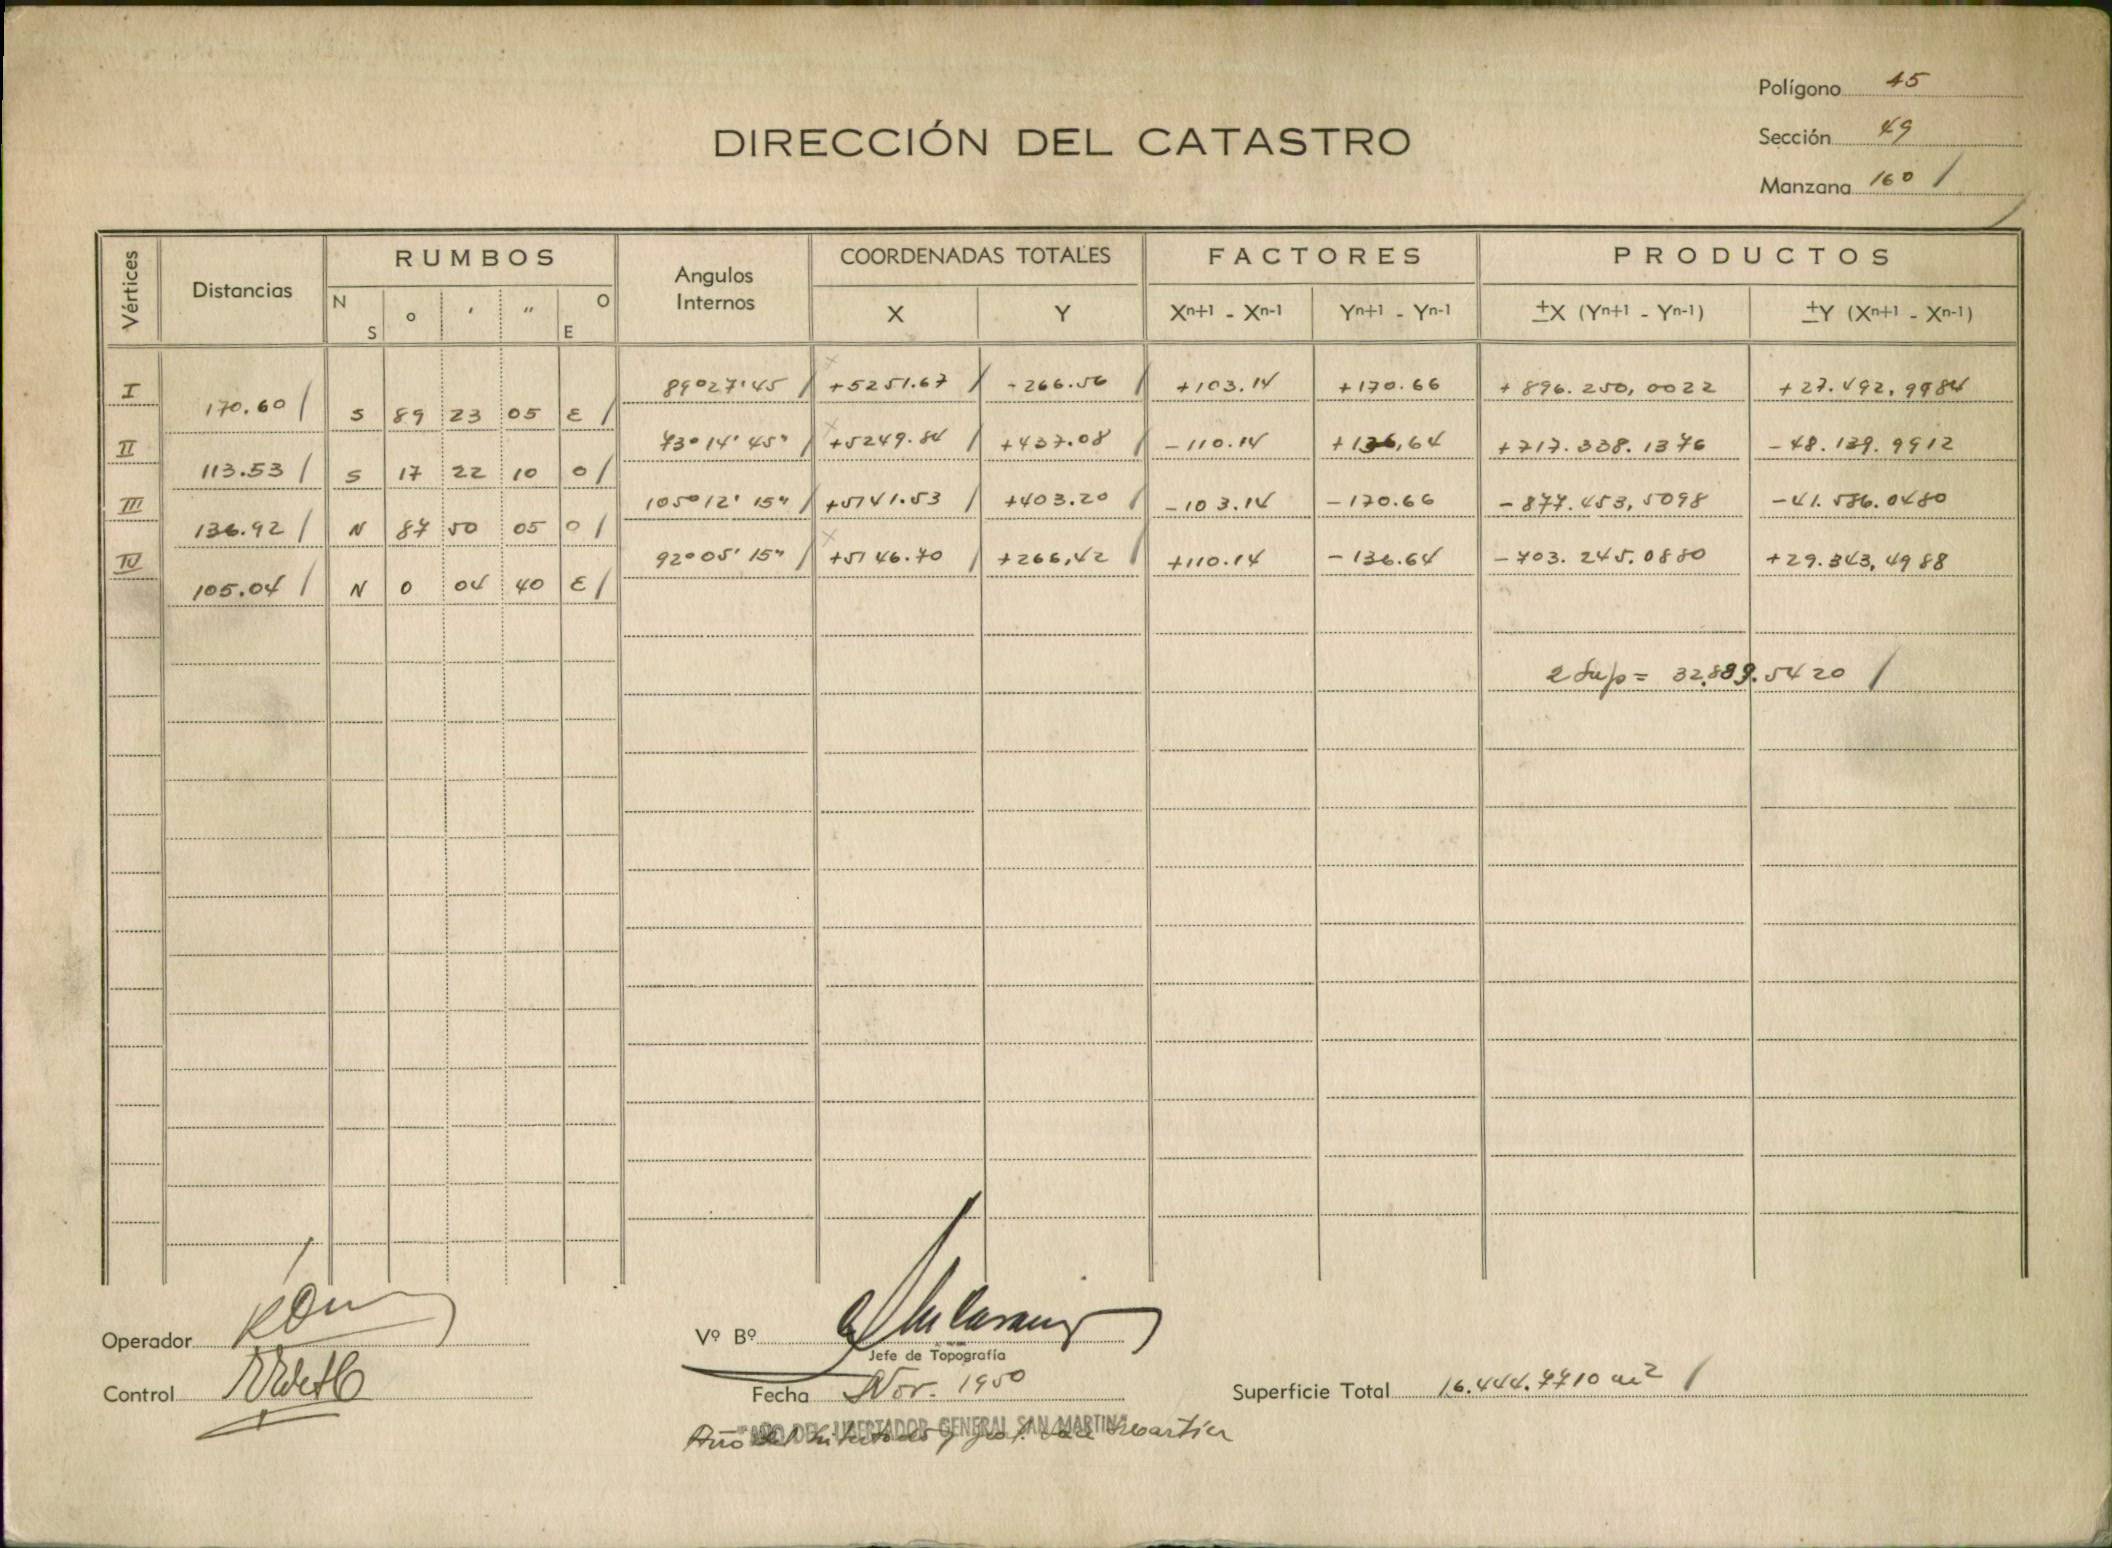 Polígono 45
DIRECCIÓN DEL CATASTRO
Sección 49
Manzana 160 /
Vértices Distancias RUMBOS Angulos Internos COORDENADAS TOTALES FACTORES PRODUCTOS
N S o ′ ″ O E X Y Xn+1 - Xn-1 Yn+1 - Yn-1 ±X (Yn+1 - Yn-1) ±Y (Xn+1 - Xn-1)
I 89°27'45 / +5251.67 / -266.56 / +103.14 +170.66 +896.250,0022 +27.492,9984
170.60 / S 89 23 05 E /
II 73°14'45" / +5249.84 / +437.08 / -110.14 +136,64 +717.338.1376 -48.139.9912
113.53 / S 17 22 10 O /
III 105°12'15" / +5141.53 / +403.20 / -103.14 -170.66 -877.453,5098 -41.586.0480
136.92 / N 87 50 05 O /
IV 92°05'15" / +5146.70 / +266,42 / +110.14 -136.64 -703.245.0880 +29.343,4988
105.04 / N 0 04 40 E /
2 Sup = 32.889.5420 /
Operador
Vº Bº
Jefe de Topografía
Control
Fecha Nov. 1950
Superficie Total 16.444.7710 m2 /
"AÑO DEL LIBERTADOR GENERAL SAN MARTIN"
Año del Libertador Gral. San Martin